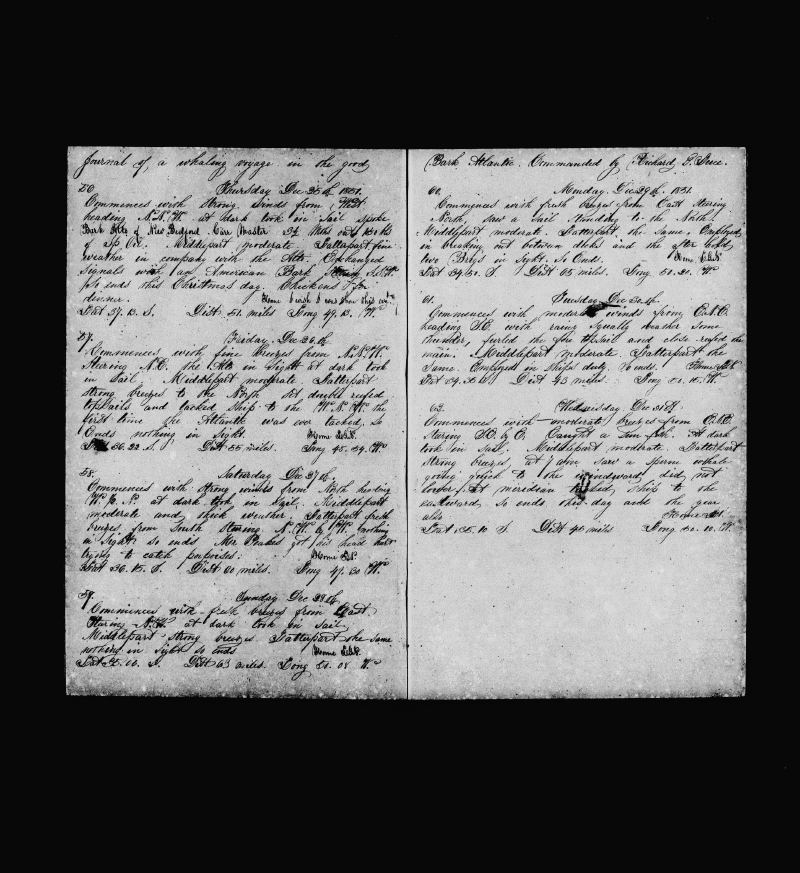 Journal of, a whaling voyage in the good
56 Thursday Dec 25th 1851.
Commences with strong winds from West
heading N.N.W. at dark took in sail spoke
Bark Alto of New Bedford Carr Master 34 Mths out
of Sp Oil. Middlepart moderate. Latterpart fine
weather in company with the Alto. Exchanged
signals with an American Bark
So ends this Christmas day. Chickens for
dinner.
Latt 37.13. S. Dist 51 miles Long 49.13. W
57. Friday Dec 26th
Commences with fine breezes from N.N.W.
Stering N.E. the Alto in sight at dark took
in Sail Middlepart moderate Latterpart
strong breezes to the North set double reefed
topsails and tacked ship to the W.N.W. the
first time the Atlantic was ever tacked, so
Ends nothing in sight.
Latt 36.22 S. Dist 55 miles. Long 48.34. W
58. Saturday Dec 27th
Commences with strong winds from North heading
at dark took in Sail. Middlepart
moderate and thick weather. Latterpart fresh
breezes from South Stering N.W. by W. nothing
in sight; so ends Mr Peakes got his head hurt
trying to catch porpoises:
Latt 36.15. S. Dist 60 miles. Long 49.30 W.
59. Sunday Dec 28th
Commences with fresh breezes from East.
Stering N.W. at dark took in Sail
Middlepart strong breezes Latterpart the same
nothing in sight so ends
Dist 63 miles. Long 51.08 W.
Bark Atlantic. Commanded by Richard
60. Monday. Dec 29th 1851.
Commences with fresh breezes from East stering
North, saw a Sail standing to the North:
Middlepart moderate. Latterpart the same, Employed
in breaking out between decks and the after hold
two Brigs in Sight. So Ends.
Latt 34.50. S Dist 65 miles. Long 50.21. W
61. Tuesday Dec 30th
Commences with moderate winds from E.N.E.
heading S.E. with rainy squally weather some
thunder, furled the fore topsail and close reefed the
main. Middlepart moderate. Latterpart the
same. Employed in Ships duty. So ends.
Dist 43 miles. Long
62. Wednesday Dec 31st
Commences with moderate breezes from
stering Caught a Sun fish. At dark
took in sail. Middlepart moderate. Latterpart
strong breezes at 7 am saw a sperm whale
going quick to the windward, did not
lower. At meridian tacked Ship to the
eastward, so ends this day and the year
also
Latt 35.10 S Dist 46 miles Long